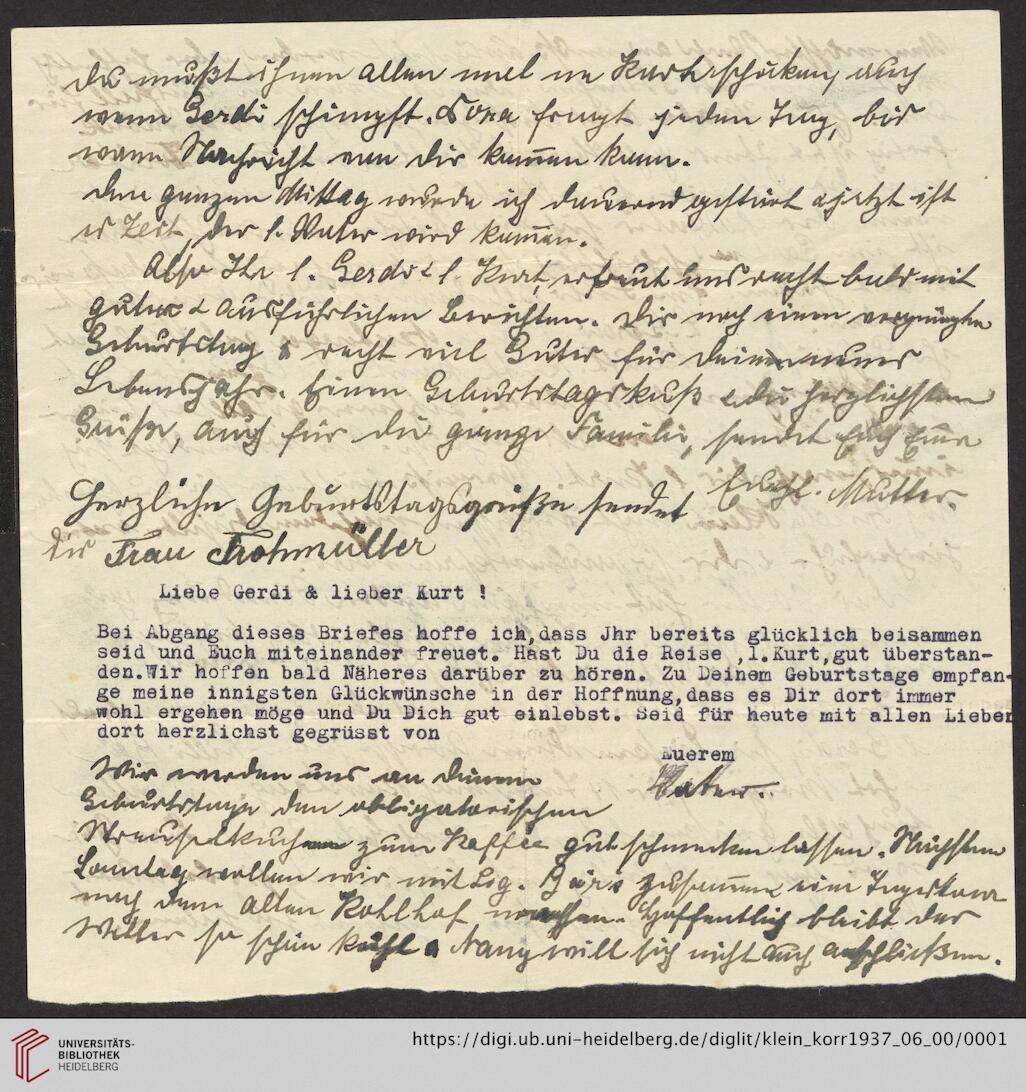 du mußt ihnen allen mal ne Karte schicken, auch
wenn Gerdi schimpft. Nora fragt jeden Tag, bis
wann Nachricht von dir kommen kann.
Den ganzen Mittag wurde ich dauernd gestört & jetzt ist
es Zeit, der l. Vater wird kommen.
Also Ihr l. Gerdi & l. Kurt, erfreut uns recht bald mit
guten & ausführlichen Berichten. Dir noch einen vergnügten
Geburtstag & recht viel Gutes für dein neues
Lebensjahr. Einen Geburtstagskuß & die herzlichsten
Grüße, auch für die ganze Familie, sendet Euch Eure
Mutter.
Herzliche Geburtstagsgrüße sendet
dir Frau Frohmüller
Liebe Gerdi & lieber Kurt !
Bei Abgang dieses Briefes hoffe ich,dass Jhr bereits glücklich beisammen
seid und Euch miteinander freuet. Hast Du die Reise ,l.Kurt,gut überstan-
den.Wir hoffen bald Näheres darüber zu hören. Zu Deinem Geburtstage empfan-
ge meine innigsten Glückwünsche in der Hoffnung,dass es Dir dort immer
wohl ergehen möge und Du Dich gut einlebst. Seid für heute mit allen Lieben
dort herzlichst gegrüsst von
Euerem
Vater.
Wir werden uns an deinem
Geburtstage den obligatorischen
Streuselkuchen zum Kaffee gut schmecken lassen. Nächsten
Sonntag wollen wir mit Bär's zusammen eine Tagestour
nach dem alten Kohlhof machen. Hoffentlich bleibt das
Wetter so schön kühl & Nany will sich nicht auch anschließen.
UNIVERSITÄTS-
BIBLIOTHEK
HEIDELBERG
https://digi.ub.uni-heidelberg.de/diglit/klein_korr1937_06_00/0001